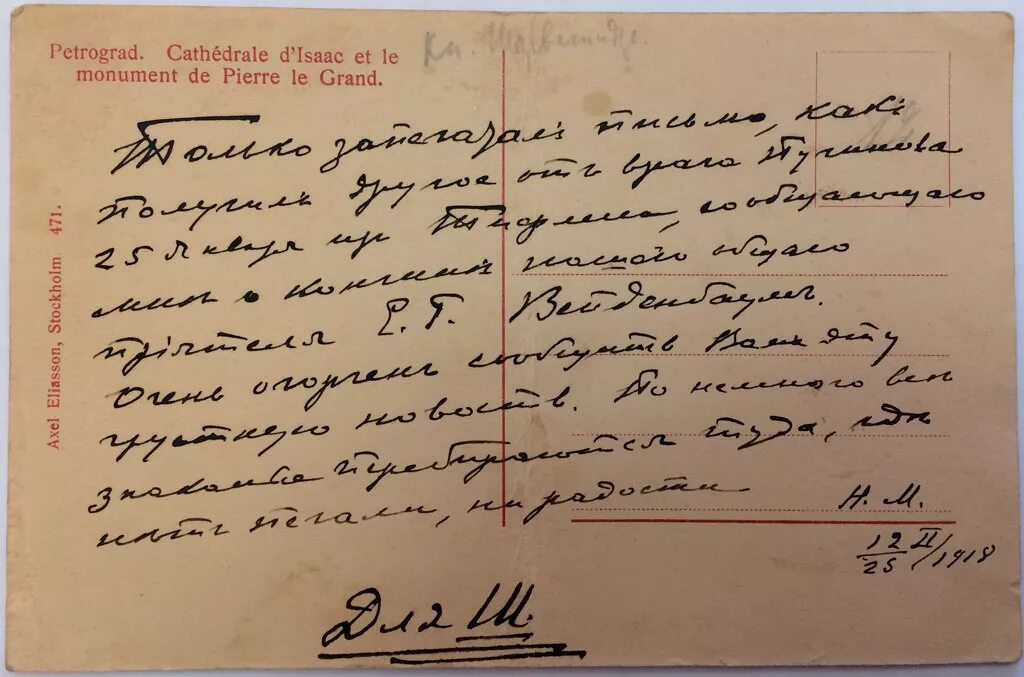 Petrograd. Cathédrale d'Isaac et le
monument de Pierre le Grand.
Кн. Шервашидзе.
Axel Eliasson, Stockholm 471.
Только запечаталъ письмо, какъ
получилъ другое отъ врача Пучинова
25 Января изъ Тифлиса, сообщающаго
мнѣ о кончинѣ нашего общаго
пріятеля Е. Г. Вейденбаумъ.
Очень огорченъ сообщить Вамъ эту
грустную новость. По немногу всѣ
знакомые перебираются туда, гдѣ
нѣтъ печали, ни радости
Н. М.
12/25 II/1918
Для Ш.